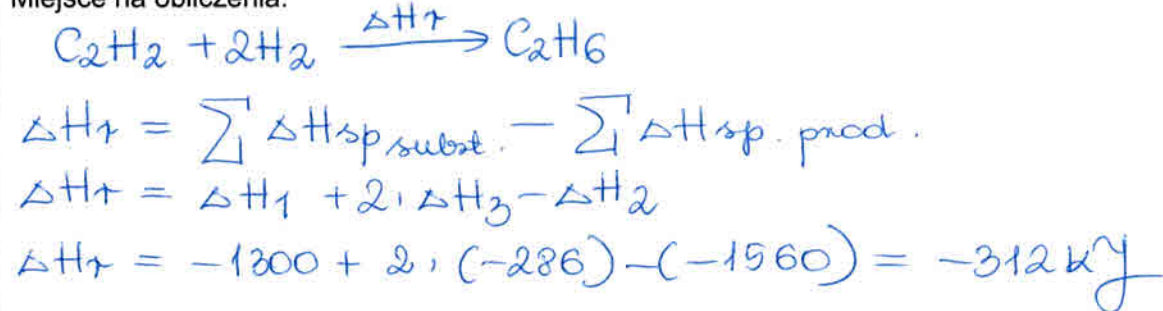 Miejsce na obliczenia:
C₂H₂ + 2H₂ —ΔHr→ C₂H₆
ΔHr = ∑ ΔHsp subst. – ∑ ΔHsp. prod.
ΔHr = ΔH₁ + 2·ΔH₃ – ΔH₂
ΔHr = –1300 + 2·(–286) – (–1560) = –312 kJ